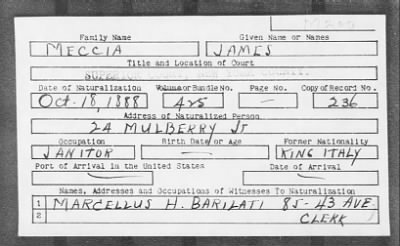 Family Name Given Name or Names
MECCIA JAMES
Title and Location of Court
SUPERIOR COURT, NEW YORK COUNTY.
Date of Naturalization Volume or Bundle No. Page No. Copy of Record No.
Oct. 18, 1888 425 — 236
Address of Naturalized Person
24 MULBERRY ST
Occupation Birth Date or Age Former Nationality
JANITOR — KING ITALY
Port of Arrival in the United States Date of Arrival
Names, Addresses and Occupations of Witnesses To Naturalization
1 MARCELLUS H. BARILATI 85-43 AVE.
2 CLERK